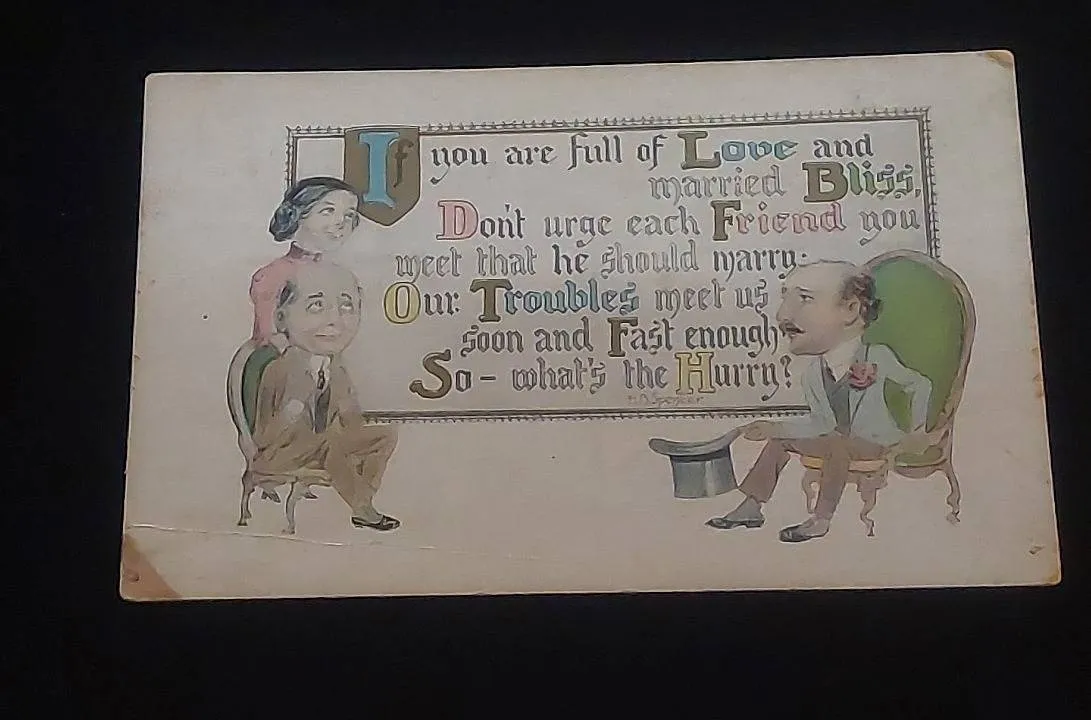 If you are full of Love and
married Bliss,
Don't urge each Friend you
meet that he should marry;
Our Troubles meet us
soon and Fast enough
So - what's the Hurry?
H.D. Spencer